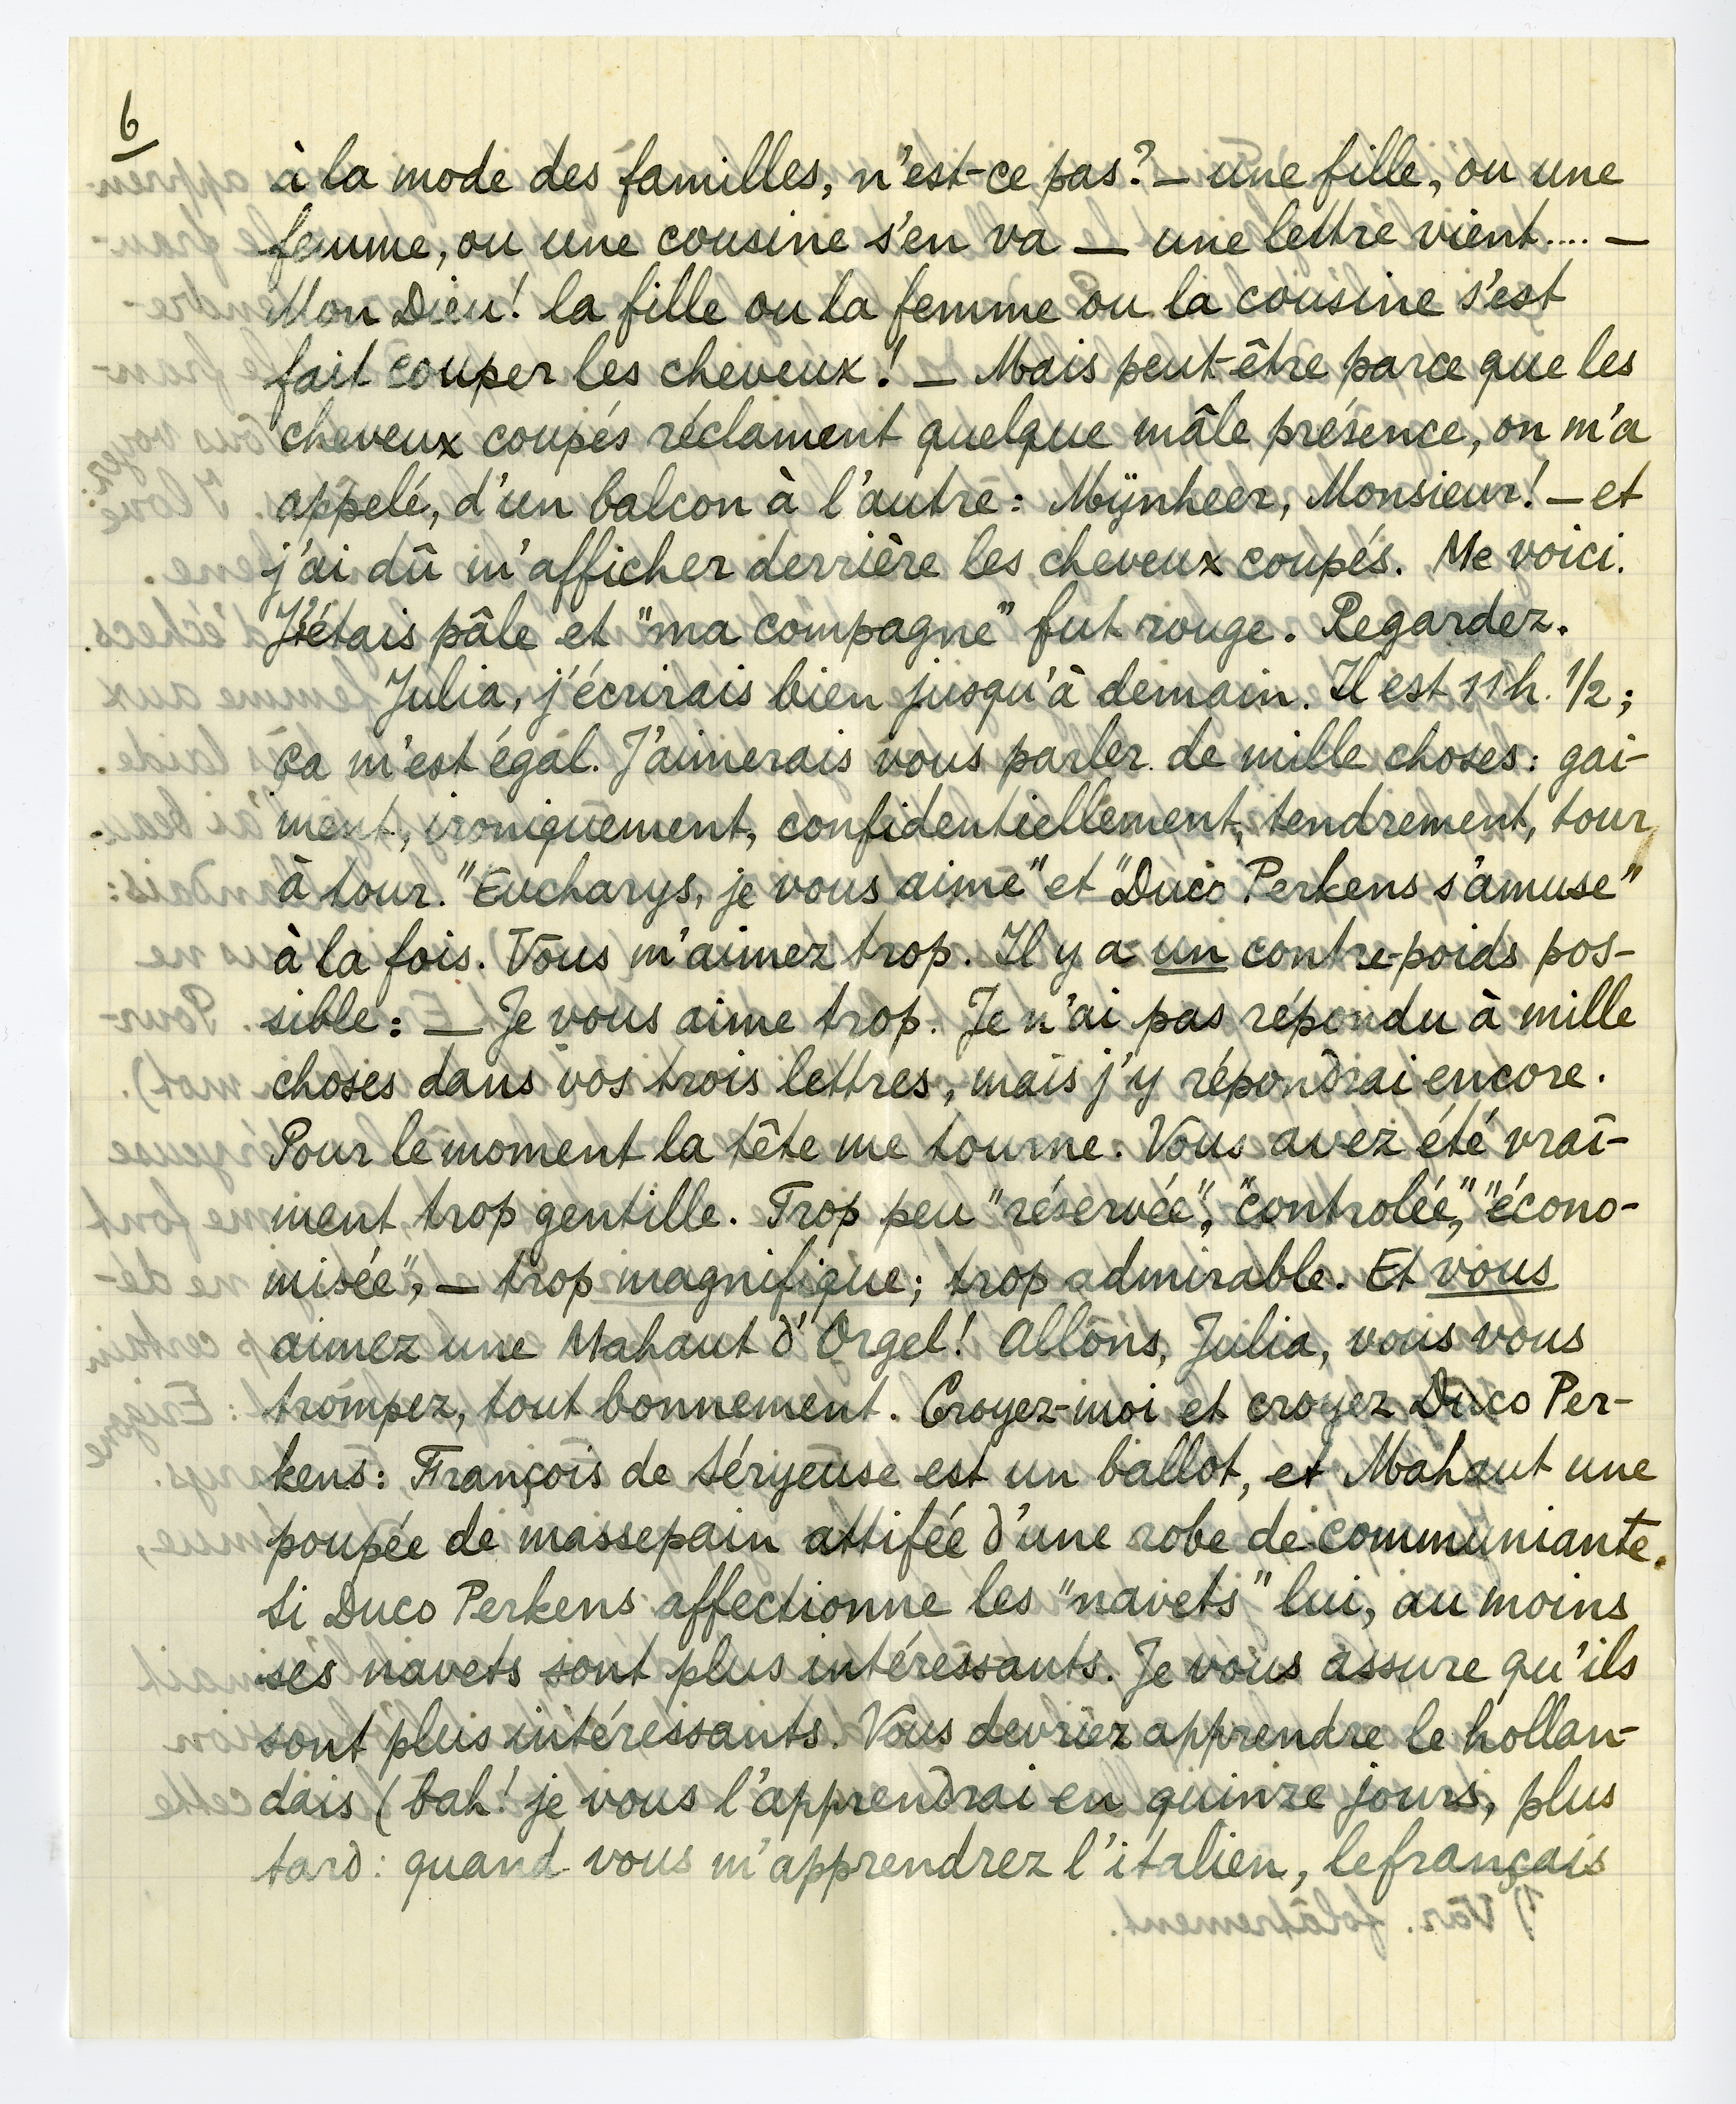 6
à la mode des familles, n'est-ce pas? — une fille, ou une
femme, ou une cousine s'en va — une lettre vient.... —
Mon Dieu! la fille ou la femme ou la cousine s'est
fait couper les cheveux! — Mais peut-être parce que les
cheveux coupés réclament quelque mâle présence, on m'a
appelé, d'un balcon à l'autre: Mÿnheer, Monsieur! — et
j'ai dû m'afficher derrière les cheveux coupés. Me voici.
J'étais pâle et "ma compagne" fut rouge. Regardez.
Julia, j'écrirais bien jusqu'à demain. Il est 11 h. 1/2;
ça m'est égal. J'aimerais vous parler de mille choses: gai-
ment, ironiquement, confidentiellement, tendrement, tour
à tour. "Eucharys, je vous aime" et "Duco Perkens s'amuse"
à la fois. Vous m'aimez trop. Il y a un contre-poids pos-
sible: — Je vous aime trop. Je n'ai pas répondu à mille
choses dans vos trois lettres, mais j'y répondrai encore.
Pour le moment la tête me tourne. Vous avez été vrai-
ment trop gentille. Trop peu "réservée", "controlée", "écono-
misée", — trop magnifique; trop admirable. Et vous
aimez une Mahaut d'Orgel! Allons, Julia, vous vous
trompez, tout bonnement. Croyez-moi et croyez Duco Per-
kens: François de Séryeuse est un ballot, et Mahaut une
poupée de massepain attifée d'une robe de communiante.
Si Duco Perkens affectionne les "navets" lui, au moins
ses navets sont plus intéressants. Je vous assure qu'ils
sont plus intéressants. Vous devriez apprendre le hollan-
dais (bah! je vous l'apprendrai en quinze jours, plus
tard: quand vous m'apprendrez l'italien, le français
1) Var. folâtrement.